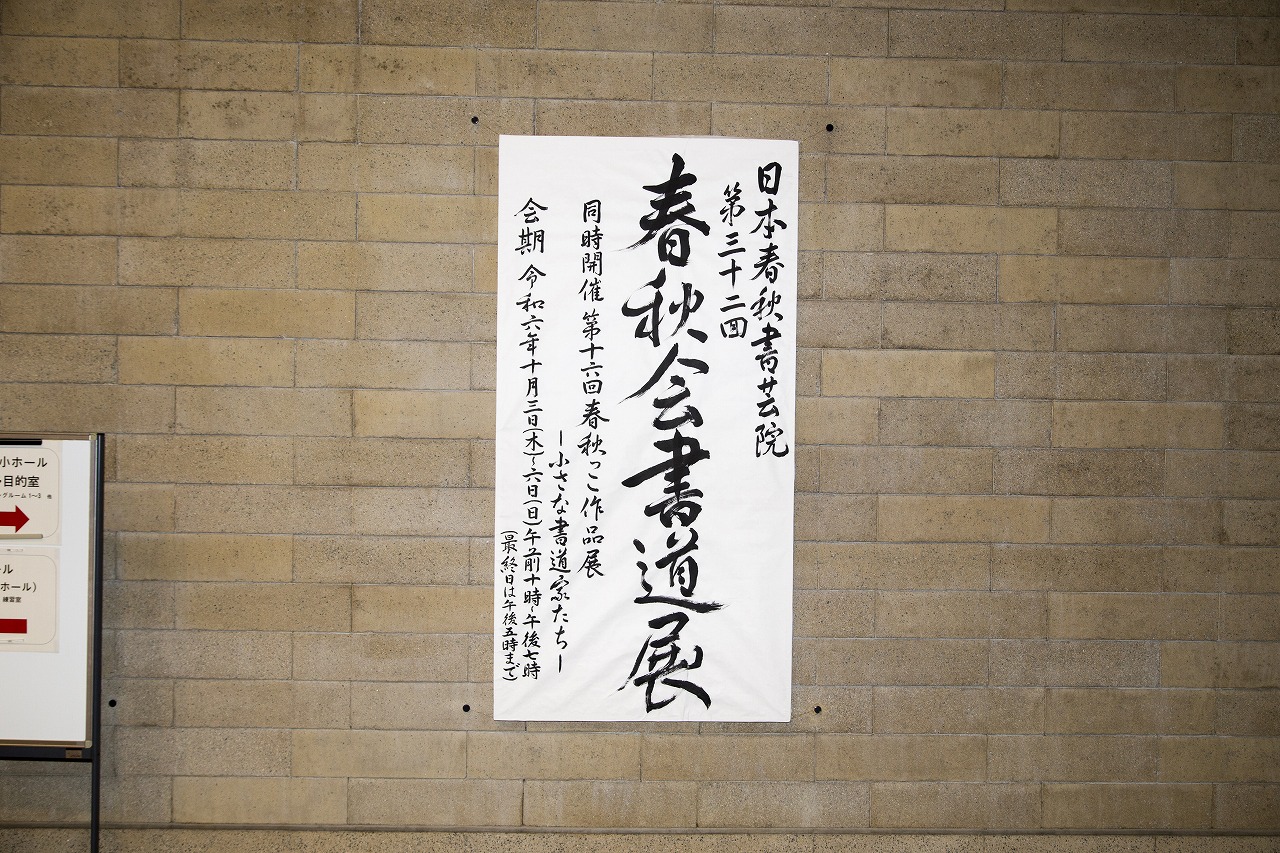 日本春秋書芸院
第三十二回
春秋会書道展
同時開催 第十六回春秋っこ作品展
ー小さな書道家たちー
会期 令和六年十月三日(木)~六日(日)午前十時~午後七時
(最終日は午後五時まで)
小ホール
目的室
グルーム1~3 他
ール
ホール)
練習室